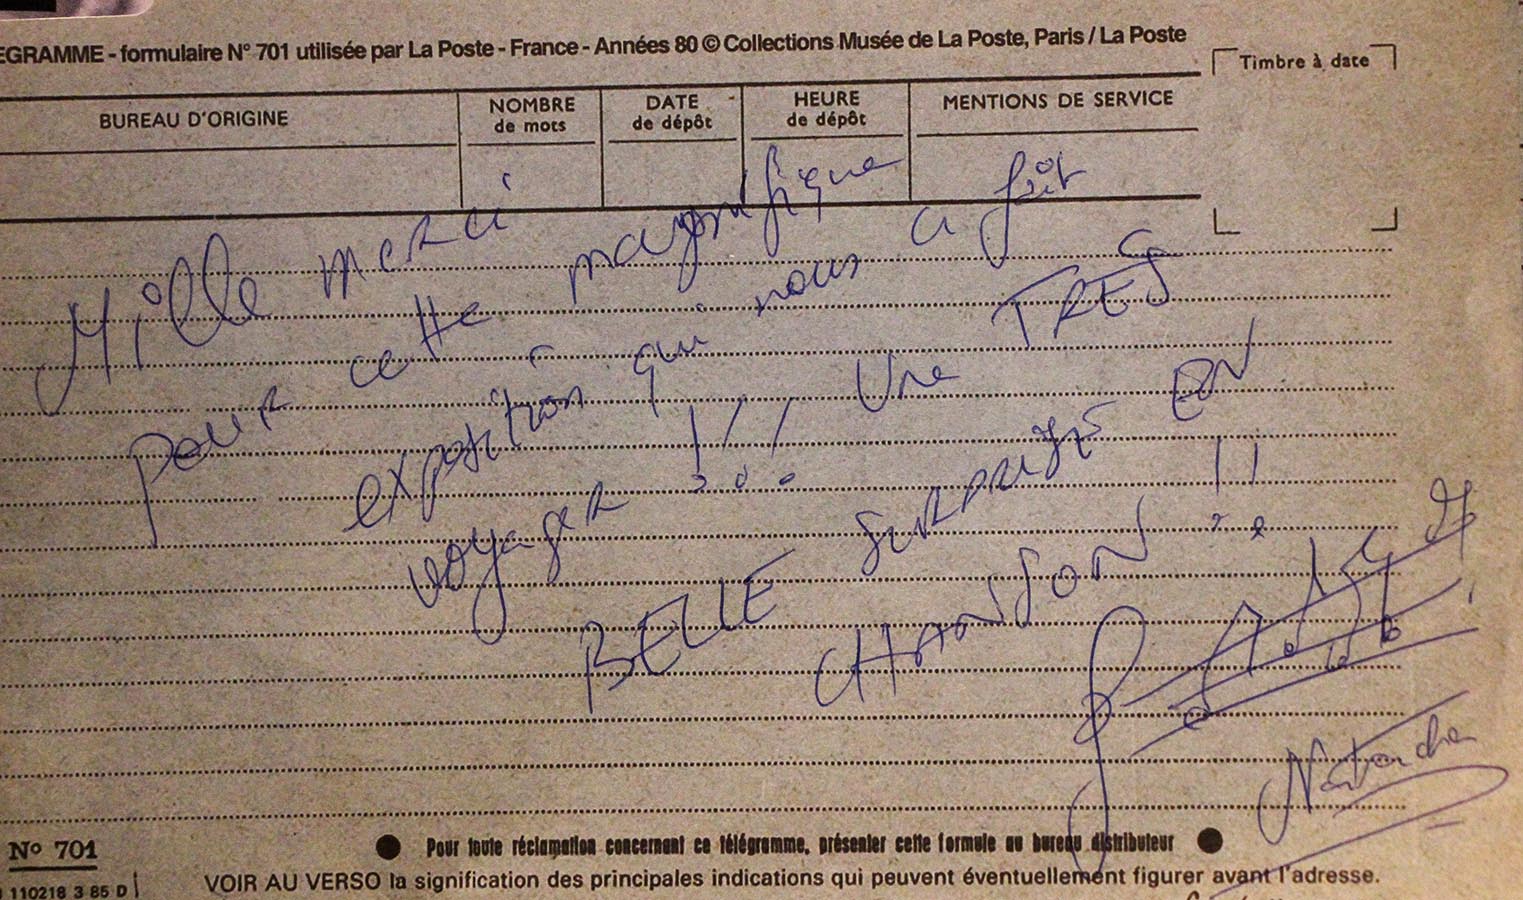 EGRAMME - formulaire N° 701 utilisée par La Poste - France - Années 80 © Collections Musée de La Poste, Paris / La Poste
Timbre à date
BUREAU D'ORIGINE
NOMBRE
de mots
DATE
de dépôt
HEURE
de dépôt
MENTIONS DE SERVICE
Mille merci
pour cette magnifique
exposition qui nous a fait
voyager !!! Une TRES
BELLE surprise EN
CHANSON !!
Natacha
N° 701
110218 3 85 D
Pour toute réclamation concernant ce télégramme, présenter cette formule au bureau distributeur
VOIR AU VERSO la signification des principales indications qui peuvent éventuellement figurer avant l'adresse.